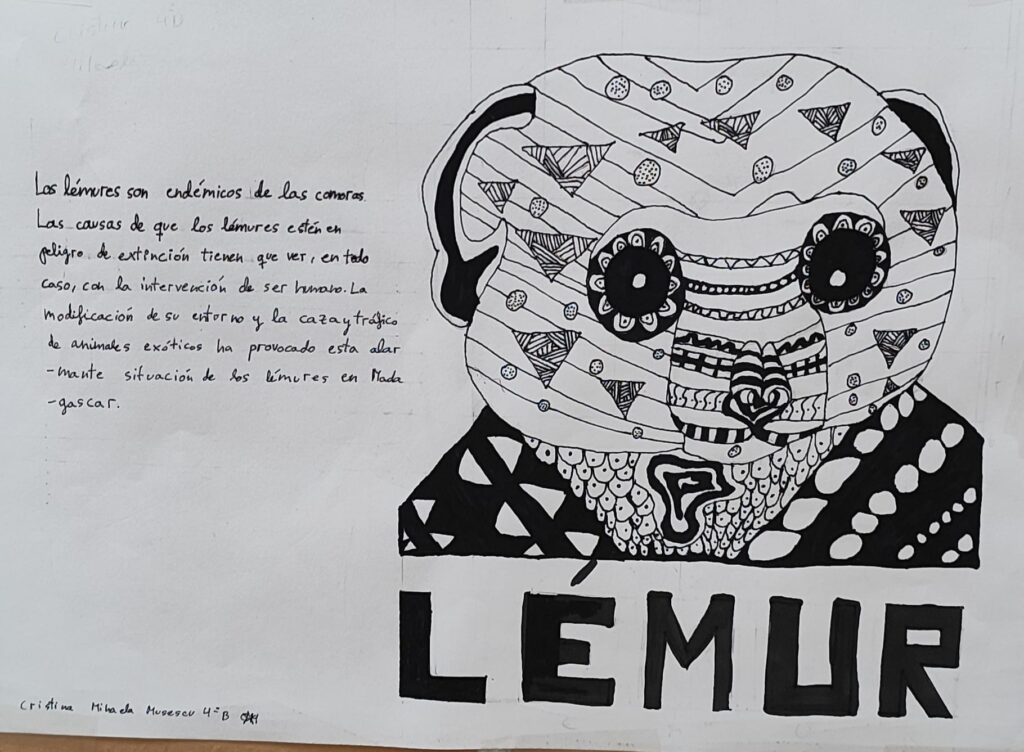 Cristina 4ºB
Los lémures son endémicos de las comoras.
Las causas de que los lémures estén en
peligro de extinción tienen que ver, en todo
caso, con la intervención de ser humano. La
modificación de su entorno y la caza y tráfico
de animales exóticos ha provocado esta alar
-mante situación de los lémures en Mada
-gascar.
LÉMUR
Cristina Mihaela Musescu 4ºB